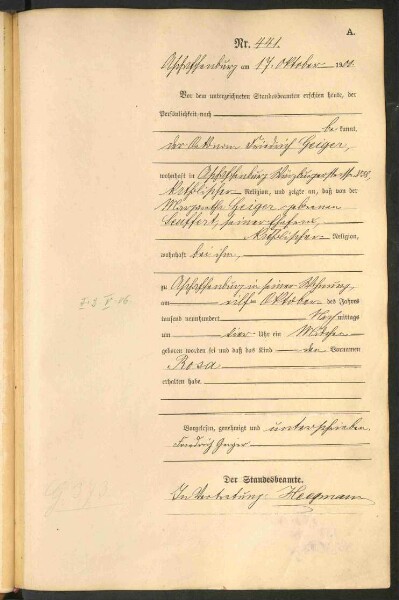 A.
Nr. 441.
Aschaffenburg am 17. Oktober 1900.
Vor dem unterzeichneten Standesbeamten erschien heute, der
Persönlichkeit nach
be kannt,
der Friedrich Geiger,
wohnhaft in Aschaffenburg
katholischer Religion, und zeigte an, daß von der
Margaretha Geiger, geborenen
Seuffert, seiner Ehefrau,
katholischer Religion,
wohnhaft bei ihm,
zu Aschaffenburg in seiner Wohnung,
am elf Oktober des Jahres
tausend neunhundert Nachmittags
um vier Uhr ein Mädchen
geboren worden sei und daß das Kind den Vornamen
Rosa
erhalten habe
Vorgelesen, genehmigt und unterschrieben
Friedrich Geiger
Der Standesbeamte.
In Vertretung: